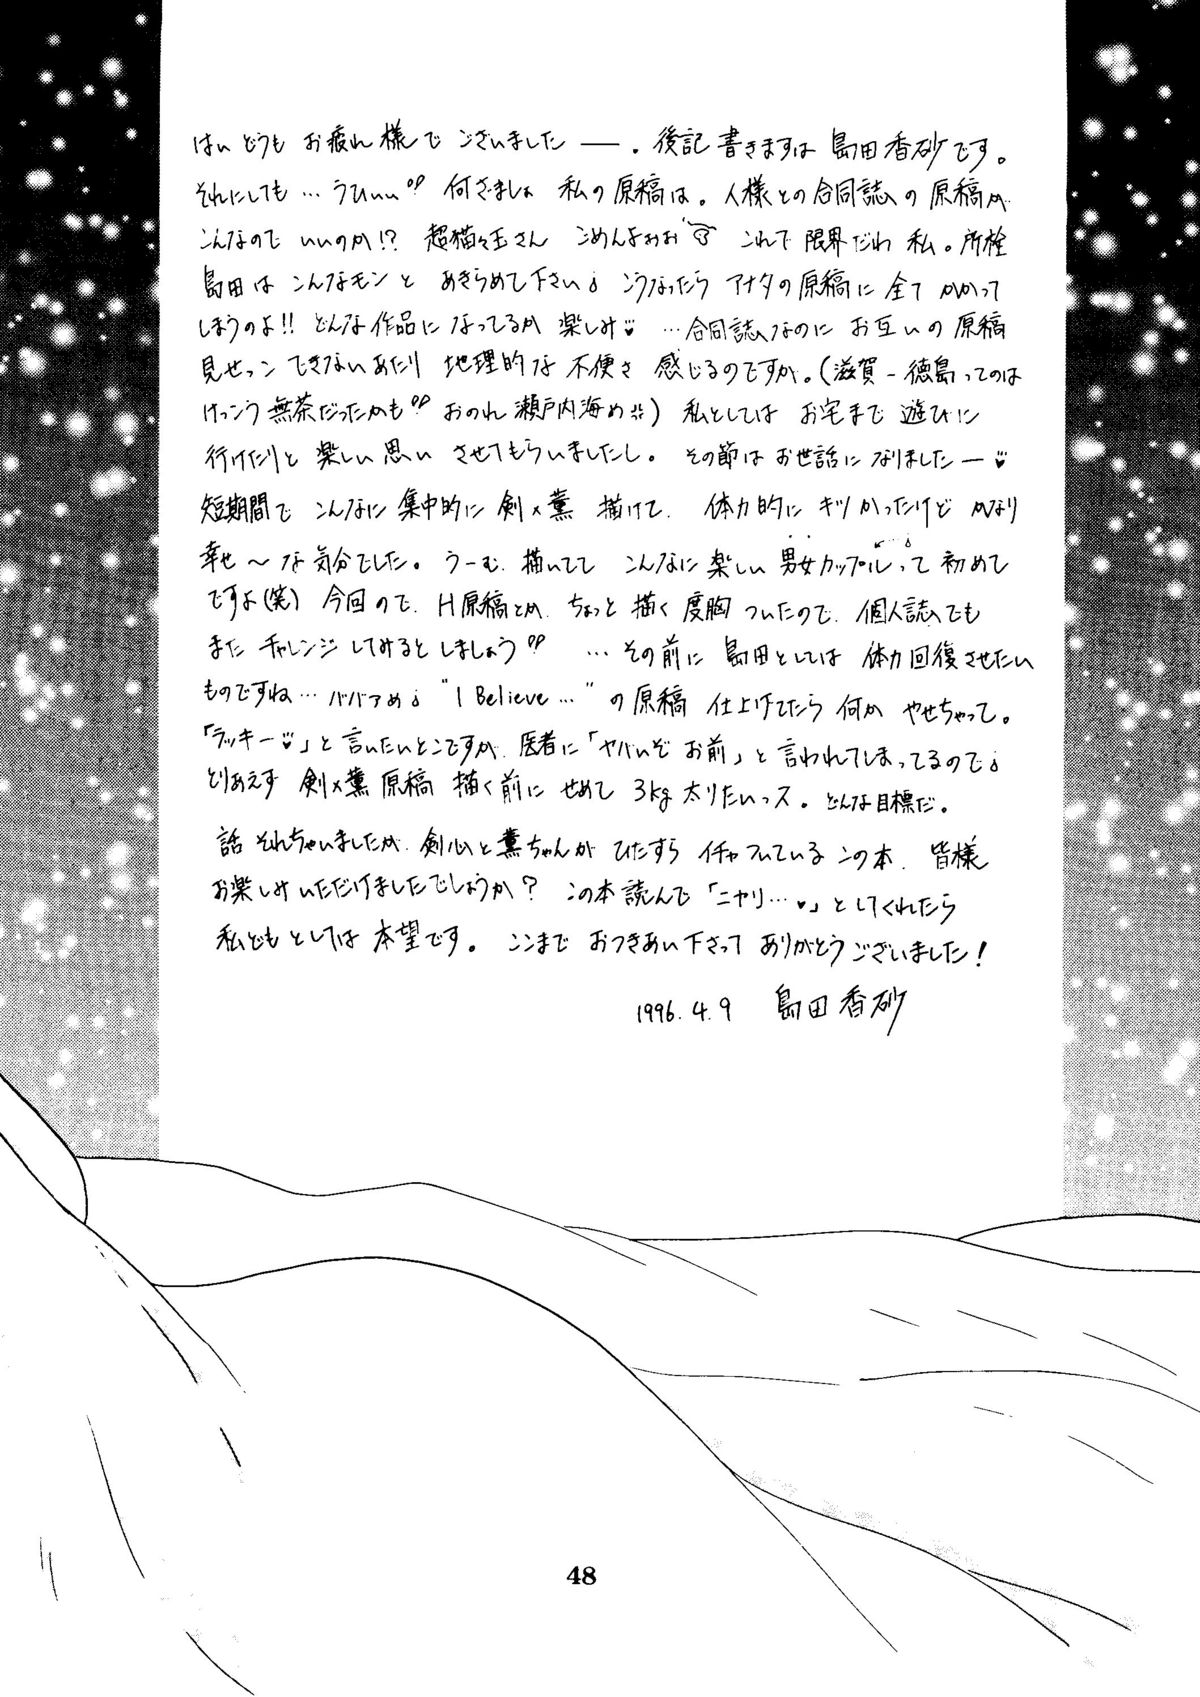 はい どうも お疲れ様で ございました ー。後記 書きますは 島田香砂です。
それにしても… うひぃぃ 何さましょ 私の原稿は。人様との合同誌の 原稿が
こんなので いいのか!? 超猫々玉さん ごめんよぉぉ これで限界だわ 私。所栓
島田は こんなモンと あきらめて下さい♩ こうなったら アナタの原稿に 全て かかって
しまうのよ!! どんな作品に なってるか 楽しみ♥ …合同誌なのに お互いの原稿
見せっこ できないあたり 地理的な 不便さ 感じるのですが。(滋賀-徳島ってのは
けっこう 無茶だったかも おのれ 瀬戸内海め) 私としては お宅まで 遊びに
行けたりと 楽しい思い させてもらいましたし。その節は お世話に なりましたー♥
短期間で こんなに 集中的に 剣×薫 描けて、体力的に キツかったけど かなり
幸せ〜な気分でした。うーむ、描いてて こんなに 楽しい 男女カップルって 初めて
ですよ(笑) 今回ので、H原稿とか、ちょっと 描く 度胸 ついたので、個人誌でも
また チャレンジ してみると しましょう …その前に 島田としては 体力回復させたい
ものですね… ババァめ♩ “I Believe…”の原稿 仕上げてたら 何か やせちゃって。
「ラッキー♥」と言いたいとこですが、医者に「ヤバいぞ お前」と 言われてしまってるので♩
とりあえず 剣×薫 原稿 描く前に せめて 3kg 太りたいっス。どんな目標だ。
話 それちゃいましたが、剣心と 薫ちゃんが ひたすら イチャついている この本、皆様
お楽しみ いただけましたでしょうか? この本読んで「ニヤリ…♥」と してくれたら
私どもとしては 本望です。ここまで おつきあい下さって ありがとう ございました!
1996.4.9 島田香砂
48